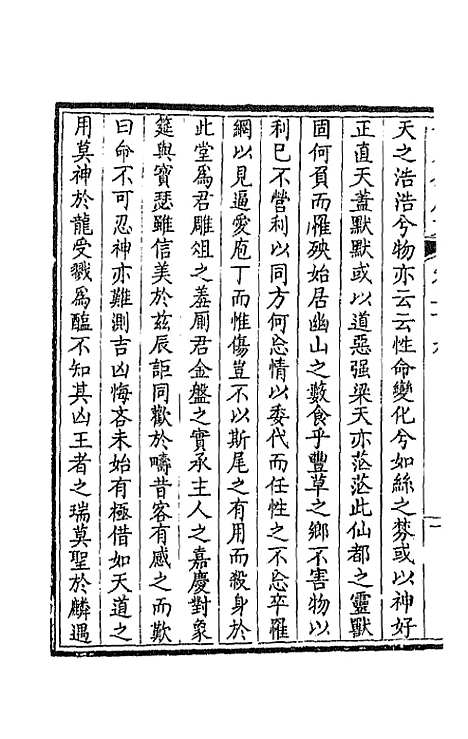 天之浩浩兮物亦云云性命變化兮如絲之棼或以神好
正直天蓋默默或以道惡强梁天亦茫茫此仙都之靈獸
固何負而罹殃始居幽山之藪食乎豐草之鄉不害物以
利己不營利以同方何忘情以委代而任性之不忘卒罹
網以見逼愛庖丁而惟傷豈不以斯尾之有用而殺身於
此堂爲君雕俎之羞厠君金盤之實承主人之嘉慶對象
筵與寶瑟雖信美於兹辰詎同歡於疇昔客有感之而歎
曰命不可忍神亦難測吉凶悔吝未始有極借如天道之
用莫神於龍受戮爲醢不知其凶王者之瑞莫聖於麟遇